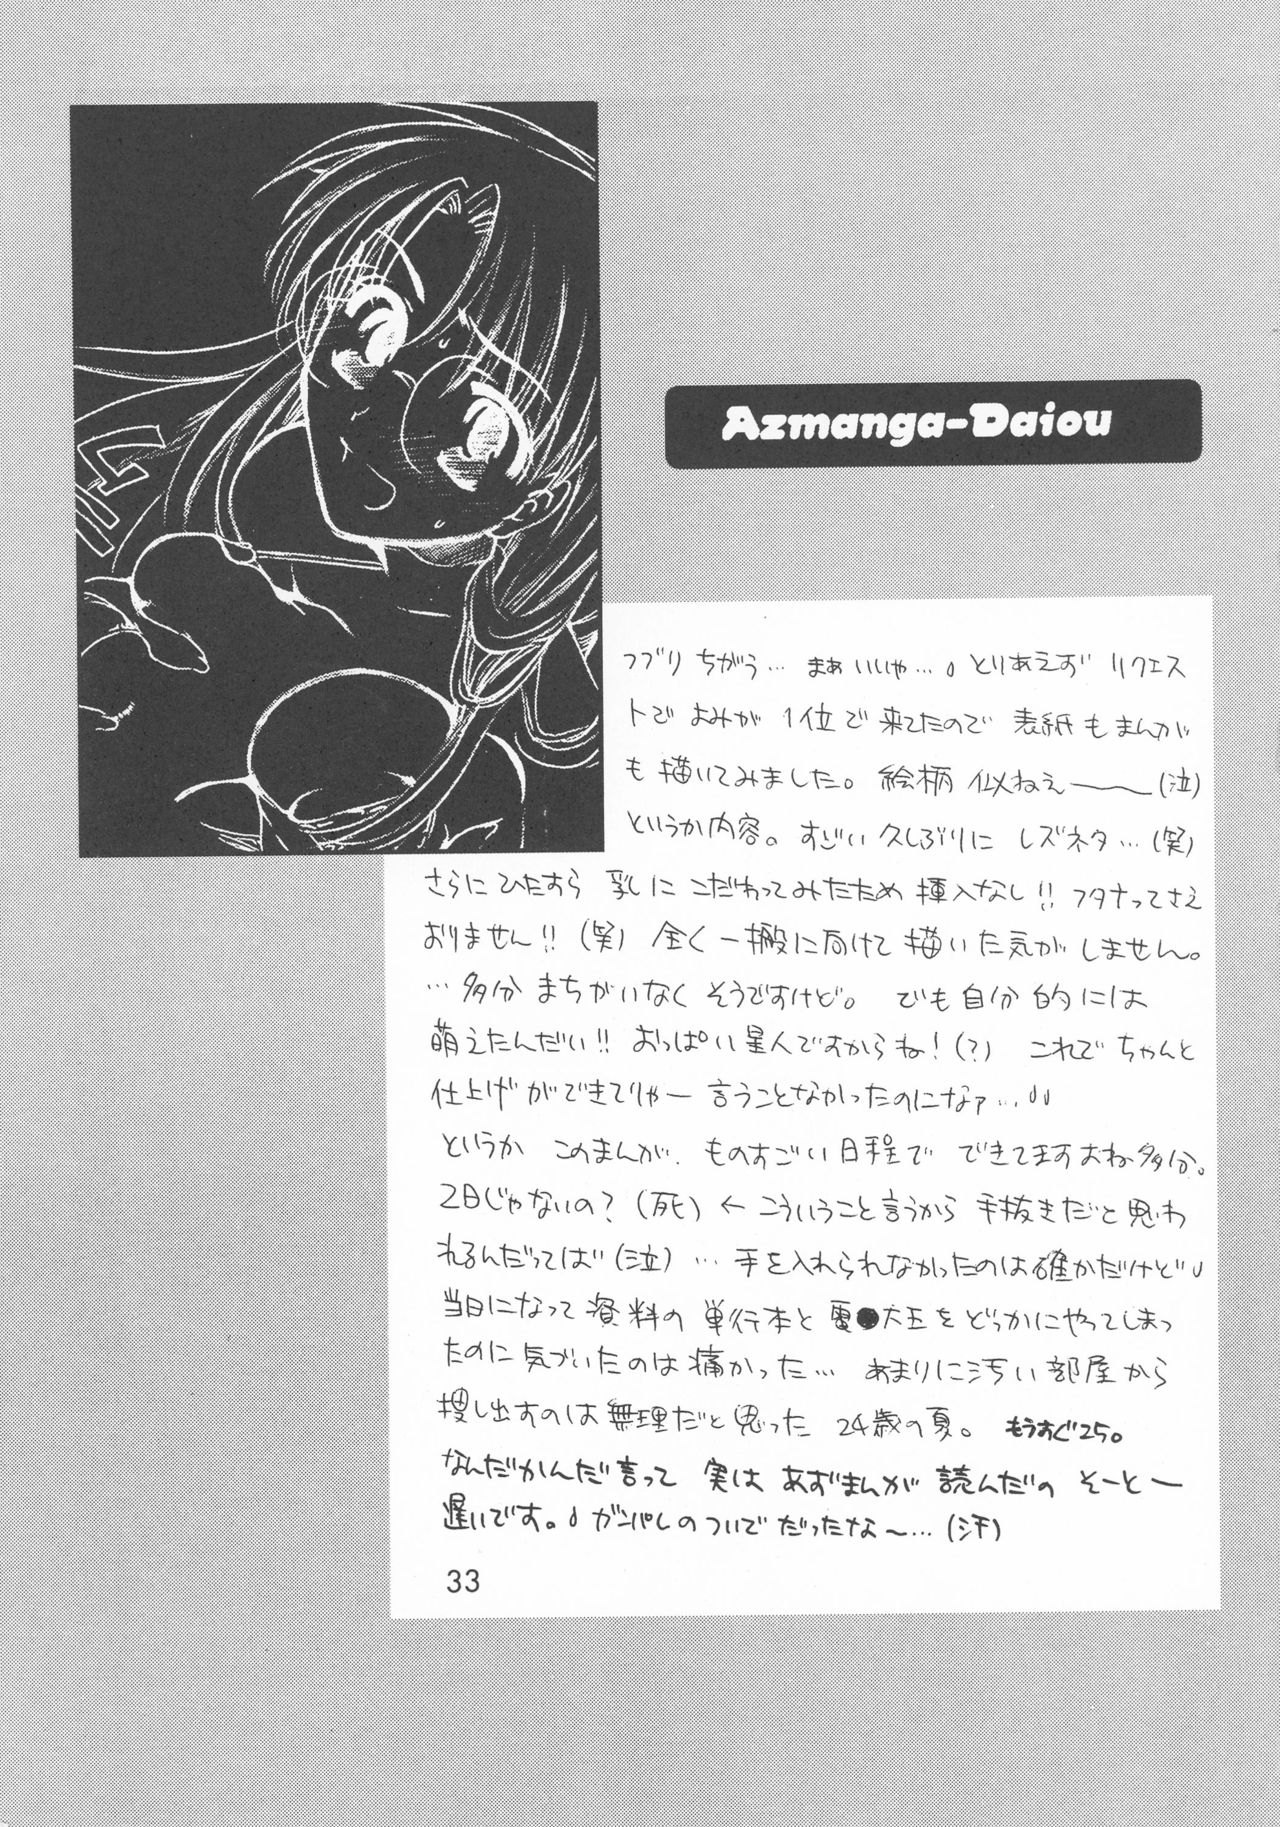 Azmanga-Daiou
つづり ちがう… まぁいいや…。とりあえず リクエス
トで よみが 1位で来てたので 表紙もまんが
も描いてみました。絵柄 似ねえ——(泣)
というか内容。すごい久しぶりに レズネタ…(笑)
さらにひたすら 乳に こだわってみたため 挿入なし!! フタナってさえ
おりません!!(笑) 全く一般に向けて描いた気がしません。
…多分 まちがいなく そうですけど。 でも自分的には
萌えたんだい!! おっぱい星人ですからね!(?) これで ちゃんと
仕上げができてりゃー 言うことなかったのになァ…
というか このまんが、ものすごい日程で できてますよね多分。
2日じゃないの?(死) ← こういうこと言うから 手抜きだと思わ
れるんだってば(泣)… 手を入れられなかったのは確かだけど
当日になって 資料の 単行本と 電●大王を どっかにやってしまっ
たのに気づいたのは痛かった… あまりに汚い部屋から
捜し出すのは無理だと思った 24歳の夏。 もうすぐ25。
なんだかんだ言って 実は あずまんが 読んだの そーとー
遅いです。ガンパレのついでだったな〜…(汗)
33